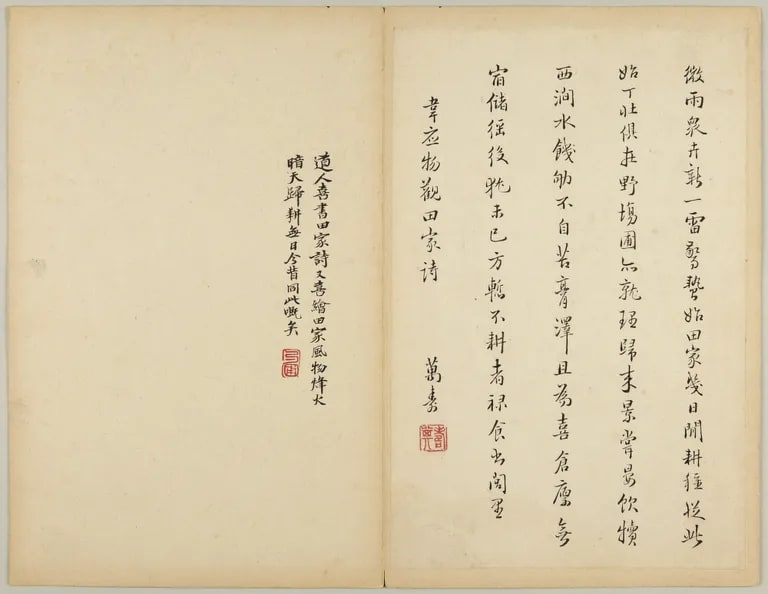 微雨衆卉新一雷驚蟄始田家幾日閒耕種從此
起丁壯俱在野場圃亦就理歸來景常晏飲犢
西澗水饑劬不自苦膏澤且為喜倉廩無
宿儲徭役猶未已方慙不耕者祿食出閭里
韋應物觀田家詩 萬壽
道人喜書田家詩又喜繪田家風物烽火
暗天歸耕無日今昔同此嘅矣